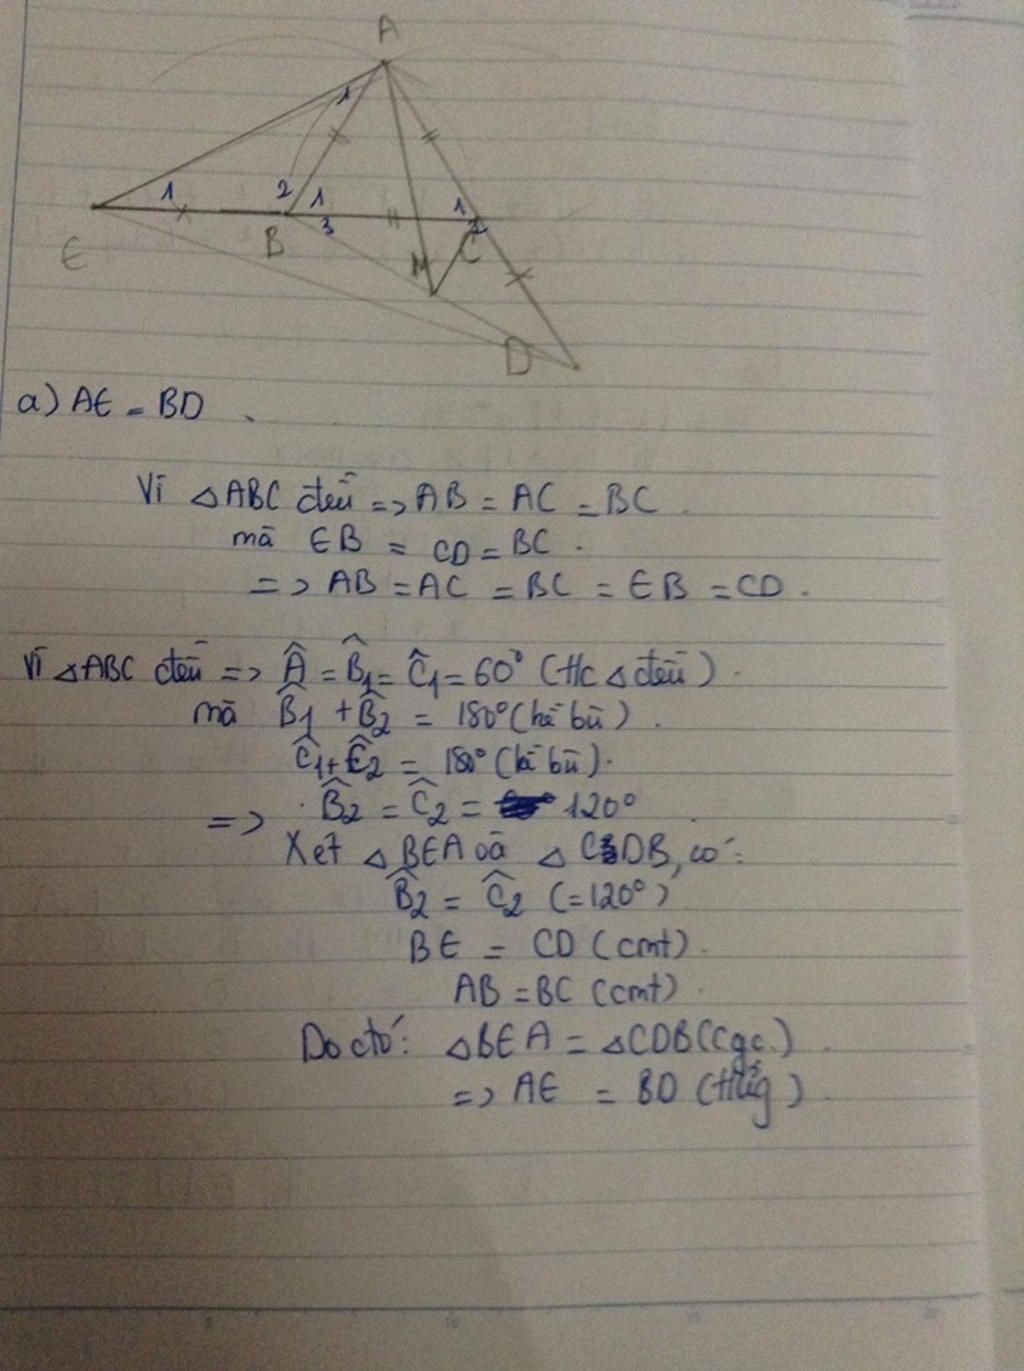 A
1
1 2 1 1
3 2
E B M C
D
a) AE = BD.
Vì △ABC đều => AB = AC = BC.
mà EB = CD = BC.
=> AB = AC = BC = EB = CD.
Vì △ABC đều => Â = B̂1 = Ĉ1 = 60° (t/c △ đều).
mà B̂1 + B̂2 = 180° (kề bù).
Ĉ1 + Ĉ2 = 180° (kề bù).
=> B̂2 = Ĉ2 = 120°
Xét △BEA và △CDB, có:
B̂2 = Ĉ2 (=120°)
BE = CD (cmt).
AB = BC (cmt).
Do đó: △BEA = △CDB (c.g.c.)
=> AE = BD